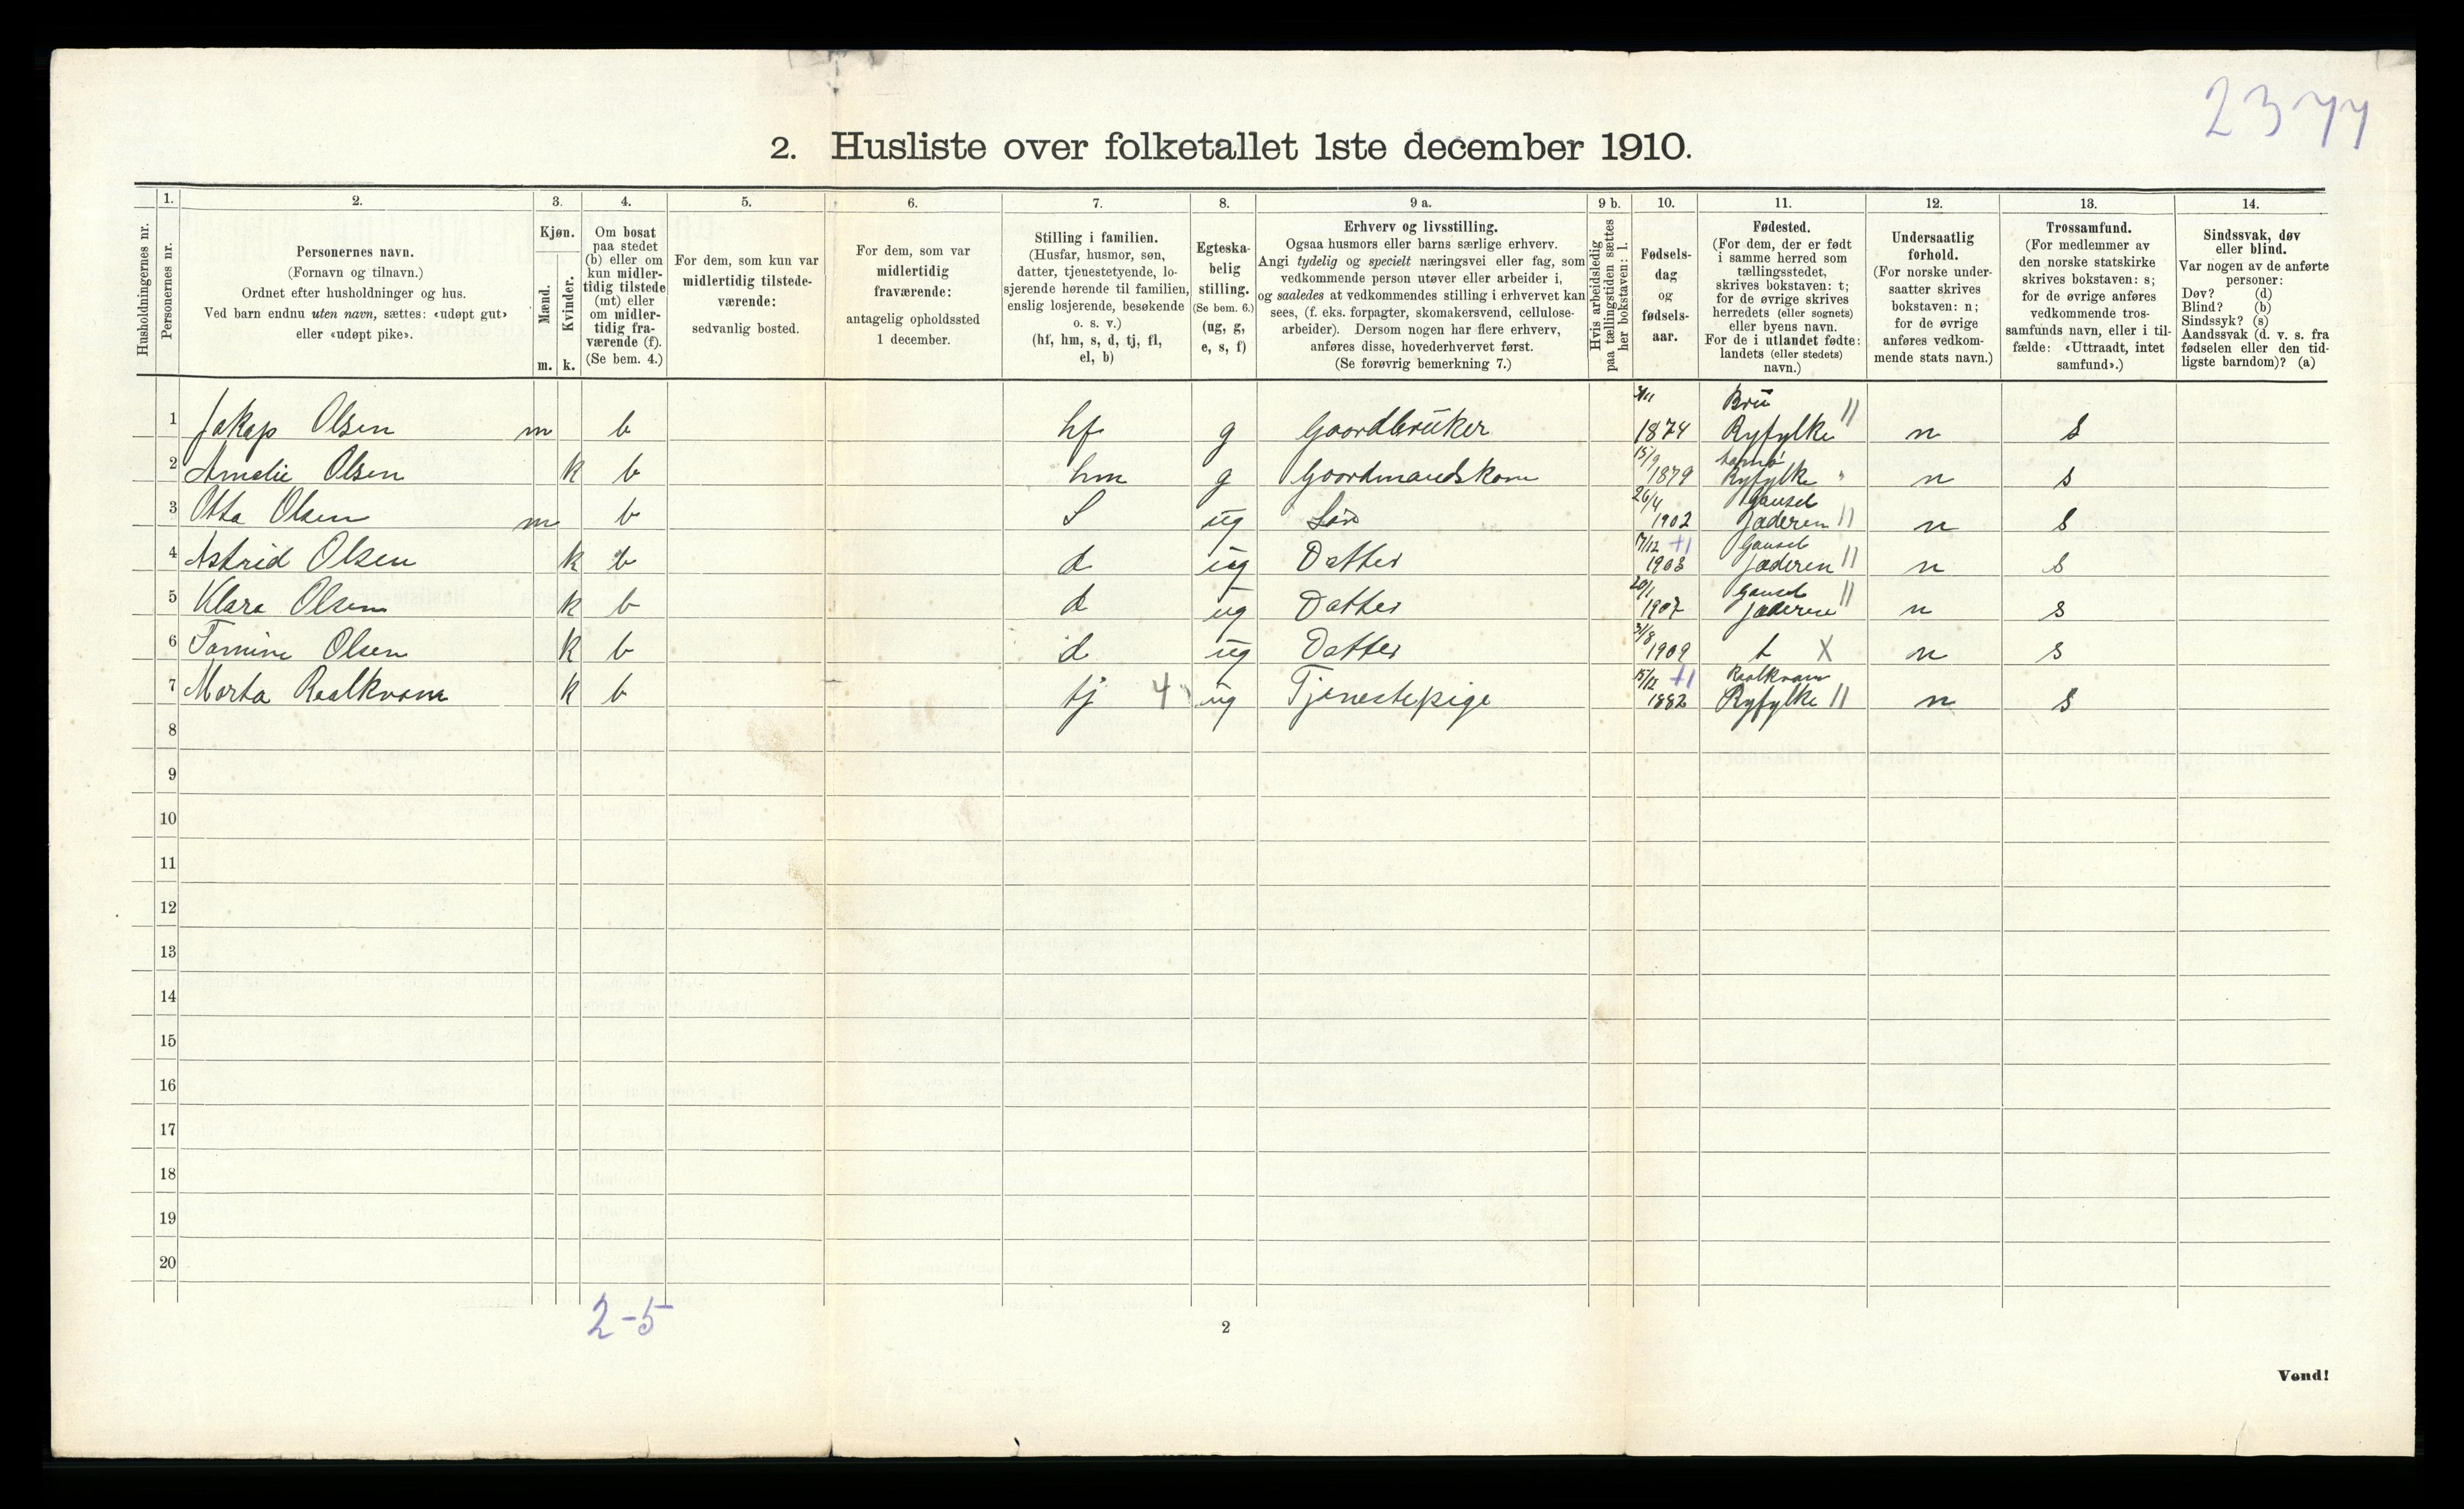 2344
2. Husliste over folketallet 1ste december 1910.
Husholdningernes nr.
1.
Personernes nr.
2.
Personernes navn.
(Fornavn og tilnavn.)
Ordnet efter husholdninger og hus.
Ved barn endnu uten navn, sættes: «udøpt gut»
eller «udøpt pike».
3.
Kjøn.
Mænd.
Kvinder.
m. k.
4.
Om bosat
paa stedet
(b) eller om
kun midler-
tidig tilstede
(mt) eller
om midler-
tidig fra-
værende (f).
(Se bem. 4.)
5.
For dem, som kun var
midlertidig tilstede-
værende:
sedvanlig bosted.
6.
For dem, som var
midlertidig
fraværende:
antagelig opholdssted
1 december.
7.
Stilling i familien.
(Husfar, husmor, søn,
datter, tjenestetyende, lo-
sjerende hørende til familien,
enslig losjerende, besøkende
o. s. v.)
(hf, hm, s, d, tj, fl,
el, b)
8.
Egteska-
belig
stilling.
(Se bem. 6.)
(ug, g,
e, s, f)
9 a.
Erhverv og livsstilling.
Ogsaa husmors eller barns særlige erhverv.
Angi tydelig og specielt næringsvei eller fag, som
vedkommende person utøver eller arbeider i,
og saaledes at vedkommendes stilling i erhvervet kan
sees, (f. eks. forpagter, skomakersvend, cellulose-
arbeider). Dersom nogen har flere erhverv,
anføres disse, hovederhvervet først.
(Se forøvrig bemerkning 7.)
9 b.
Hvis arbeidsledig
paa tællingstiden sættes
her bokstaven: l.
10.
Fødsels-
dag
og
fødsels-
aar.
11.
Fødested.
(For dem, der er født
i samme herred som
tællingsstedet,
skrives bokstaven: t;
for de øvrige skrives
herredets (eller sognets)
eller byens navn.
For de i utlandet fødte:
landets (eller stedets)
navn.)
12.
Undersaatlig
forhold.
(For norske under-
saatter skrives
bokstaven: n;
for de øvrige
anføres vedkom-
mende stats navn.)
13.
Trossamfund.
(For medlemmer av
den norske statskirke
skrives bokstaven: s;
for de øvrige anføres
vedkommende tros-
samfunds navn, eller i til-
fælde: «Uttraadt, intet
samfund».)
14.
Sindssvak, døv
eller blind.
Var nogen av de anførte
personer:
Døv? (d)
Blind? (b)
Sindssyk? (s)
Aandssvak (d. v. s. fra
fødselen eller den tid-
ligste barndom)? (a)
Brü
1 Jakap Olsen m b hf g Gaardbrüker 1874 Ryfylke // n s
15/9
2 Amelie Olsen k b hm g Gaardmandskone 1879 Ryfylke " n s
26/4 Gausel
3 Otto Olsen m b S üg Sön 1902 Jæderen // n s
17/12 +1 Gausel
4 Astrid Olsen k b d üg Datter 1903 Jæderen // n s
20/1 Gausel
5 Klara Olsen k b d üg Datter 1907 Jæderen // n s
31/8
6 Tomine Olsen k b d üg Datter 1909 t X n s
15/12 +1 Raalkvam
7 Marta Raalkvam k b tj 4 üg Tjenestepige 1882 Ryfylke // n s
8
9
10
11
12
13
14
15
16
17
18
19
20
2-5
2
Vend!